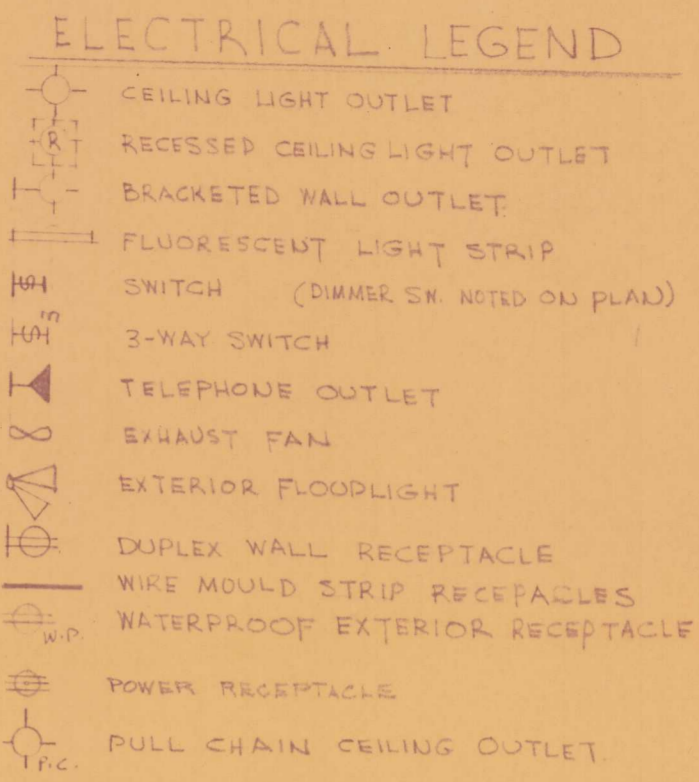 ELECTRICAL LEGEND
CEILING LIGHT OUTLET
R RECESSED CEILING LIGHT OUTLET
BRACKETED WALL OUTLET
FLUORESCENT LIGHT STRIP
S SWITCH (DIMMER SW. NOTED ON PLAN)
S3 3-WAY SWITCH
TELEPHONE OUTLET
EXHAUST FAN
EXTERIOR FLOUDLIGHT
DUPLEX WALL RECEPTACLE
WIRE MOULD STRIP RECEPACLES
W.P. WATERPROOF EXTERIOR RECEPTACLE
POWER RECEPTACLE
P.C. PULL CHAIN CEILING OUTLET.